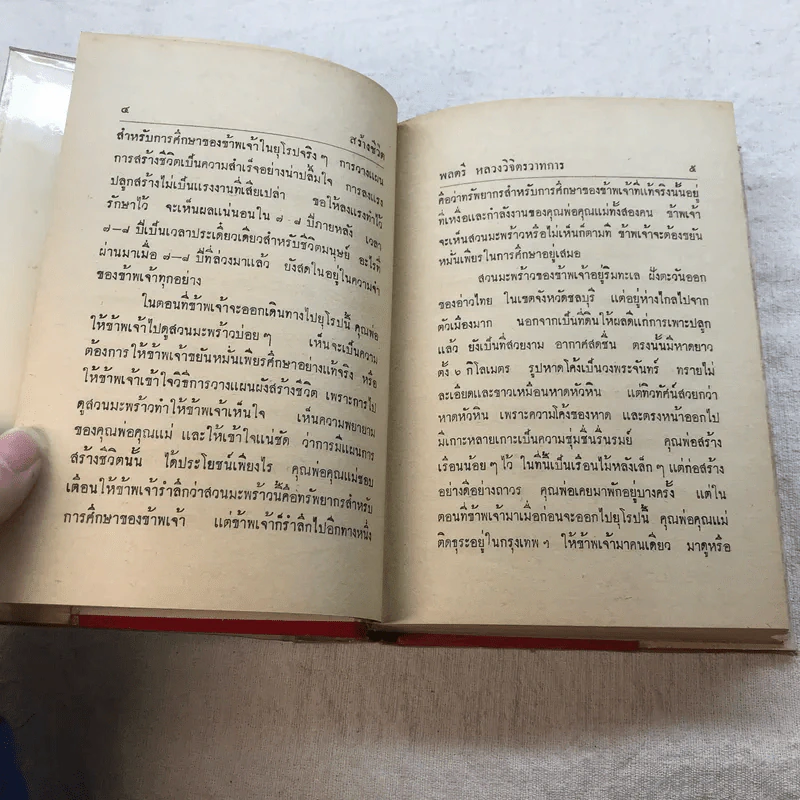 ๔
สร้างชีวิต
สำหรับการศึกษาของข้าพเจ้าในยุโรปจริง ๆ การวางแผน
การสร้างชีวิตเป็นความสำเร็จอย่างน่าปลื้มใจ การลงแรง
ปลูกสร้างไม่เป็นแรงงานที่เสียเปล่า ขอให้ลงแรงทำไว้
รักษาไว้ จะเห็นผลแน่นอนใน ๗-๘ ปีภายหลัง เวลา
๗–๘ ปีเป็นเวลาประเดี๋ยวเดียวสำหรับชีวิตมนุษย์ อะไรที่
ผ่านมาเมื่อ ๗–๘ ปีที่ล่วงมาแล้ว ยังสดในอยู่ในความจำ
ของข้าพเจ้าทุกอย่าง
ในตอนที่ข้าพเจ้าจะออกเดินทางไปยุโรปนี้ คุณพ่อ
ให้ข้าพเจ้าไปดูสวนมะพร้าวบ่อย ๆ เห็นจะเป็นความ
ต้องการให้ข้าพเจ้าขยันหมั่นเพียรศึกษาอย่างแท้จริง หรือ
ให้ข้าพเจ้าเข้าใจวิธีการวางแผนผังสร้างชีวิต เพราะการไป
ดูสวนมะพร้าวทำให้ข้าพเจ้าเห็นใจ เห็นความพยายาม
ของคุณพ่อคุณแม่ และให้เข้าใจแน่ชัด ว่าการมีแผนการ
สร้างชีวิตนั้น ได้ประโยชน์เพียงไร คุณพ่อคุณแม่ชอบ
เตือนให้ข้าพเจ้ารำลึกว่าสวนมะพร้าวนี้คือทรัพยากรสำหรับ
การศึกษาของข้าพเจ้า แต่ข้าพเจ้าก็รำลึกไปอีกทางหนึ่ง
พลตรี หลวงวิจิตรวาทการ
๕
คือว่าทรัพยากรสำหรับการศึกษาของข้าพเจ้าที่แท้จริงนั้นอยู่
ที่เหงื่อและกำลังงานของคุณพ่อคุณแม่ทั้งสองคน ข้าพเจ้า
จะเห็นสวนมะพร้าวหรือไม่เห็นก็ตามที ข้าพเจ้าจะต้องขยัน
หมั่นเพียรในการศึกษาอยู่เสมอ
สวนมะพร้าวของข้าพเจ้าอยู่ริมทะเล ฝั่งตะวันออก
ของอ่าวไทย ในเขตจังหวัดชลบุรี แต่อยู่ห่างไกลไปจาก
ตัวเมืองมาก นอกจากเป็นที่ดินให้ผลดีแก่การเพาะปลูก
แล้ว ยังเป็นที่สวยงาม อากาศสดชื่น ตรงนั้นมีหาดยาว
ตั้ง ๖ กิโลเมตร รูปหาดโค้งเป็นวงพระจันทร์ ทรายไม่
ละเอียดและขาวเหมือนหาดหัวหิน แต่ทิวทัศน์สวยกว่า
หาดหัวหิน เพราะความโค้งของหาด และตรงหน้าออกไป
มีเกาะหลายเกาะเป็นความชุ่มชื่นรื่นรมย์ คุณพ่อสร้าง
เรือนน้อย ๆ ไว้ ในที่นั้นเป็นเรือนไม้หลังเล็ก ๆ แต่ก่อสร้าง
อย่างดีอย่างถาวร คุณพ่อเคยมาพักอยู่บางครั้ง แต่ใน
ตอนที่ข้าพเจ้ามาเมื่อก่อนจะออกไปยุโรปนี้ คุณพ่อคุณแม่
ติดธุระอยู่ในกรุงเทพ ฯ ให้ข้าพเจ้ามาคนเดียว มาดูหรือ